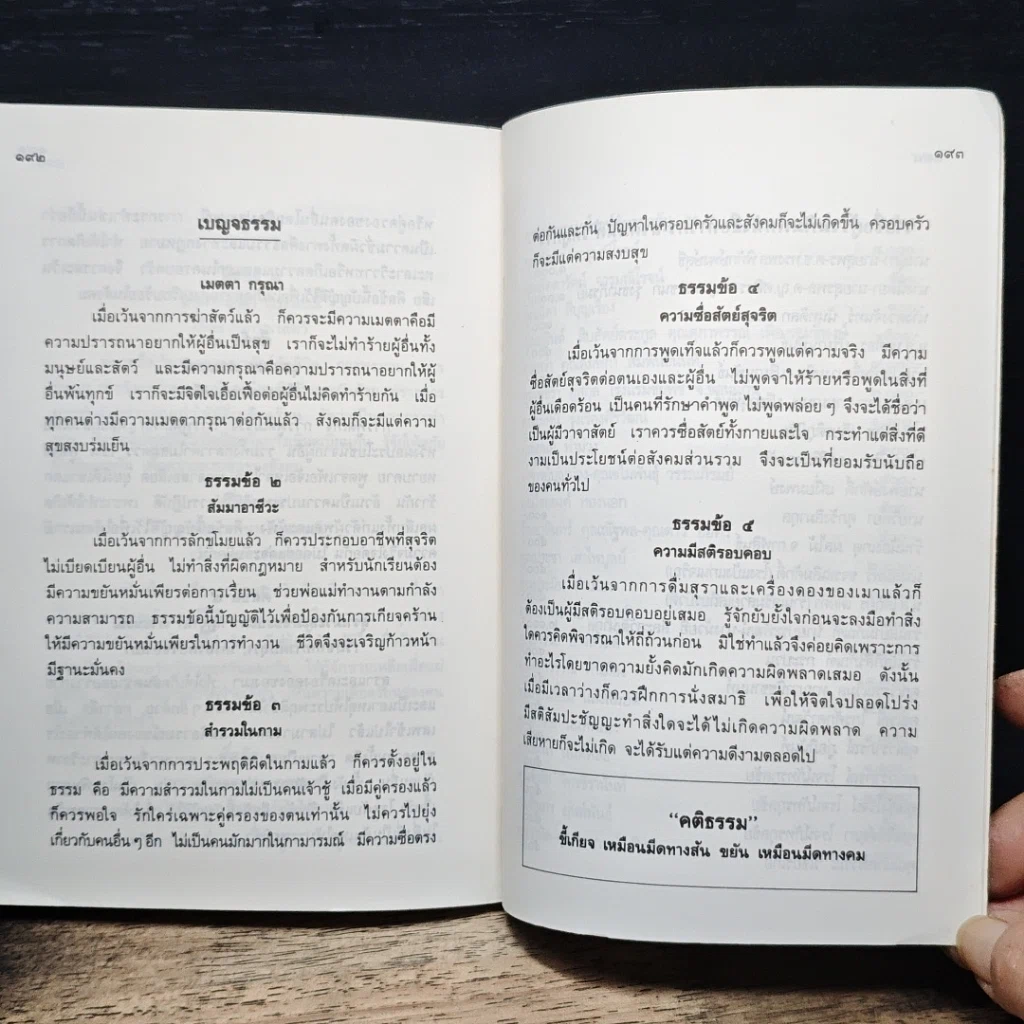 ๑๙๒
เบญจธรรม
เมตตา กรุณา
เมื่อเว้นจากการฆ่าสัตว์แล้ว ก็ควรจะมีความเมตตาคือมี
ความปรารถนาอยากให้ผู้อื่นเป็นสุข เราก็จะไม่ทำร้ายผู้อื่นทั้ง
มนุษย์และสัตว์ และมีความกรุณาคือความปรารถนาอยากให้ผู้
อื่นพ้นทุกข์ เราก็จะมีจิตใจเอื้อเฟื้อต่อผู้อื่นไม่คิดทำร้ายกัน เมื่อ
ทุกคนต่างมีความเมตตากรุณาต่อกันแล้ว สังคมก็จะมีแต่ความ
สุขสงบร่มเย็น
ธรรมข้อ ๒
สัมมาอาชีวะ
เมื่อเว้นจากการลักขโมยแล้ว ก็ควรประกอบอาชีพที่สุจริต
ไม่เบียดเบียนผู้อื่น ไม่ทำสิ่งที่ผิดกฎหมาย สำหรับนักเรียนต้อง
มีความขยันหมั่นเพียรต่อการเรียน ช่วยพ่อแม่ทำงานตามกำลัง
ความสามารถ ธรรมข้อนี้บัญญัติไว้เพื่อป้องกันการเกียจคร้าน
ให้มีความขยันหมั่นเพียรในการทำงาน ชีวิตจึงจะเจริญก้าวหน้า
มีฐานะมั่นคง
ธรรมข้อ ๓
สำรวมในกาม
เมื่อเว้นจากการประพฤติผิดในกามแล้ว ก็ควรตั้งอยู่ใน
ธรรม คือ มีความสำรวมในกามไม่เป็นคนเจ้าชู้ เมื่อมีคู่ครองแล้ว
ก็ควรพอใจ รักใคร่เฉพาะคู่ครองของตนเท่านั้น ไม่ควรไปยุ่ง
เกี่ยวกับคนอื่น ๆ อีก ไม่เป็นคนมักมากในกามารมณ์ มีความซื่อตรง
๑๙๓
ต่อกันและกัน ปัญหาในครอบครัวและสังคมก็จะไม่เกิดขึ้น ครอบครัว
ก็จะมีแต่ความสงบสุข
ธรรมข้อ ๔
ความซื่อสัตย์สุจริต
เมื่อเว้นจากการพูดเท็จแล้วก็ควรพูดแต่ความจริง มีความ
ซื่อสัตย์สุจริตต่อตนเองและผู้อื่น ไม่พูดจาให้ร้ายหรือพูดในสิ่งที่
ผู้อื่นเดือดร้อน เป็นคนที่รักษาคำพูด ไม่พูดพล่อย ๆ จึงจะได้ชื่อว่า
เป็นผู้มีวาจาสัตย์ เราควรซื่อสัตย์ทั้งกายและใจ กระทำแต่สิ่งที่ดี
งามเป็นประโยชน์ต่อสังคมส่วนรวม จึงจะเป็นที่ยอมรับนับถือ
ของคนทั่วไป
ธรรมข้อ ๕
ความมีสติรอบคอบ
เมื่อเว้นจากการดื่มสุราและเครื่องดองของเมาแล้วก็
ต้องเป็นผู้มีสติรอบคอบอยู่เสมอ รู้จักยับยั้งใจก่อนจะลงมือทำสิ่ง
ใดควรคิดพิจารณาให้ถี่ถ้วนก่อน มิใช่ทำแล้วจึงค่อยคิดเพราะการ
ทำอะไรโดยขาดความยั้งคิดมักเกิดความผิดพลาดเสมอ ดังนั้น
เมื่อมีเวลาว่างก็ควรฝึกการนั่งสมาธิ เพื่อให้จิตใจปลอดโปร่ง
มีสติสัมปะชัญญะทำสิ่งใดจะได้ไม่เกิดความผิดพลาด ความ
เสียหายก็จะไม่เกิด จะได้รับแต่ความดีงามตลอดไป
“คติธรรม”
ขี้เกียจ เหมือนมีดทางสัน ขยัน เหมือนมีดทางคม